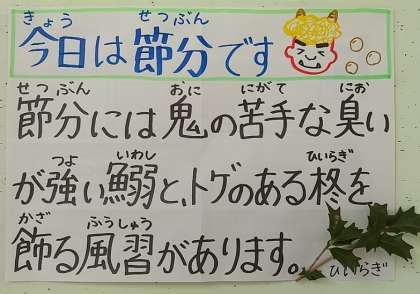 きょう せつぶん
今日は節分です
せつ ぶん おに にがて にお
節分には鬼の苦手な臭い
つよ いわし ひいらぎ
が強い鰯と、トゲのある柊を
かざ ふうしゅう
飾る風習があります。
ひいらぎ